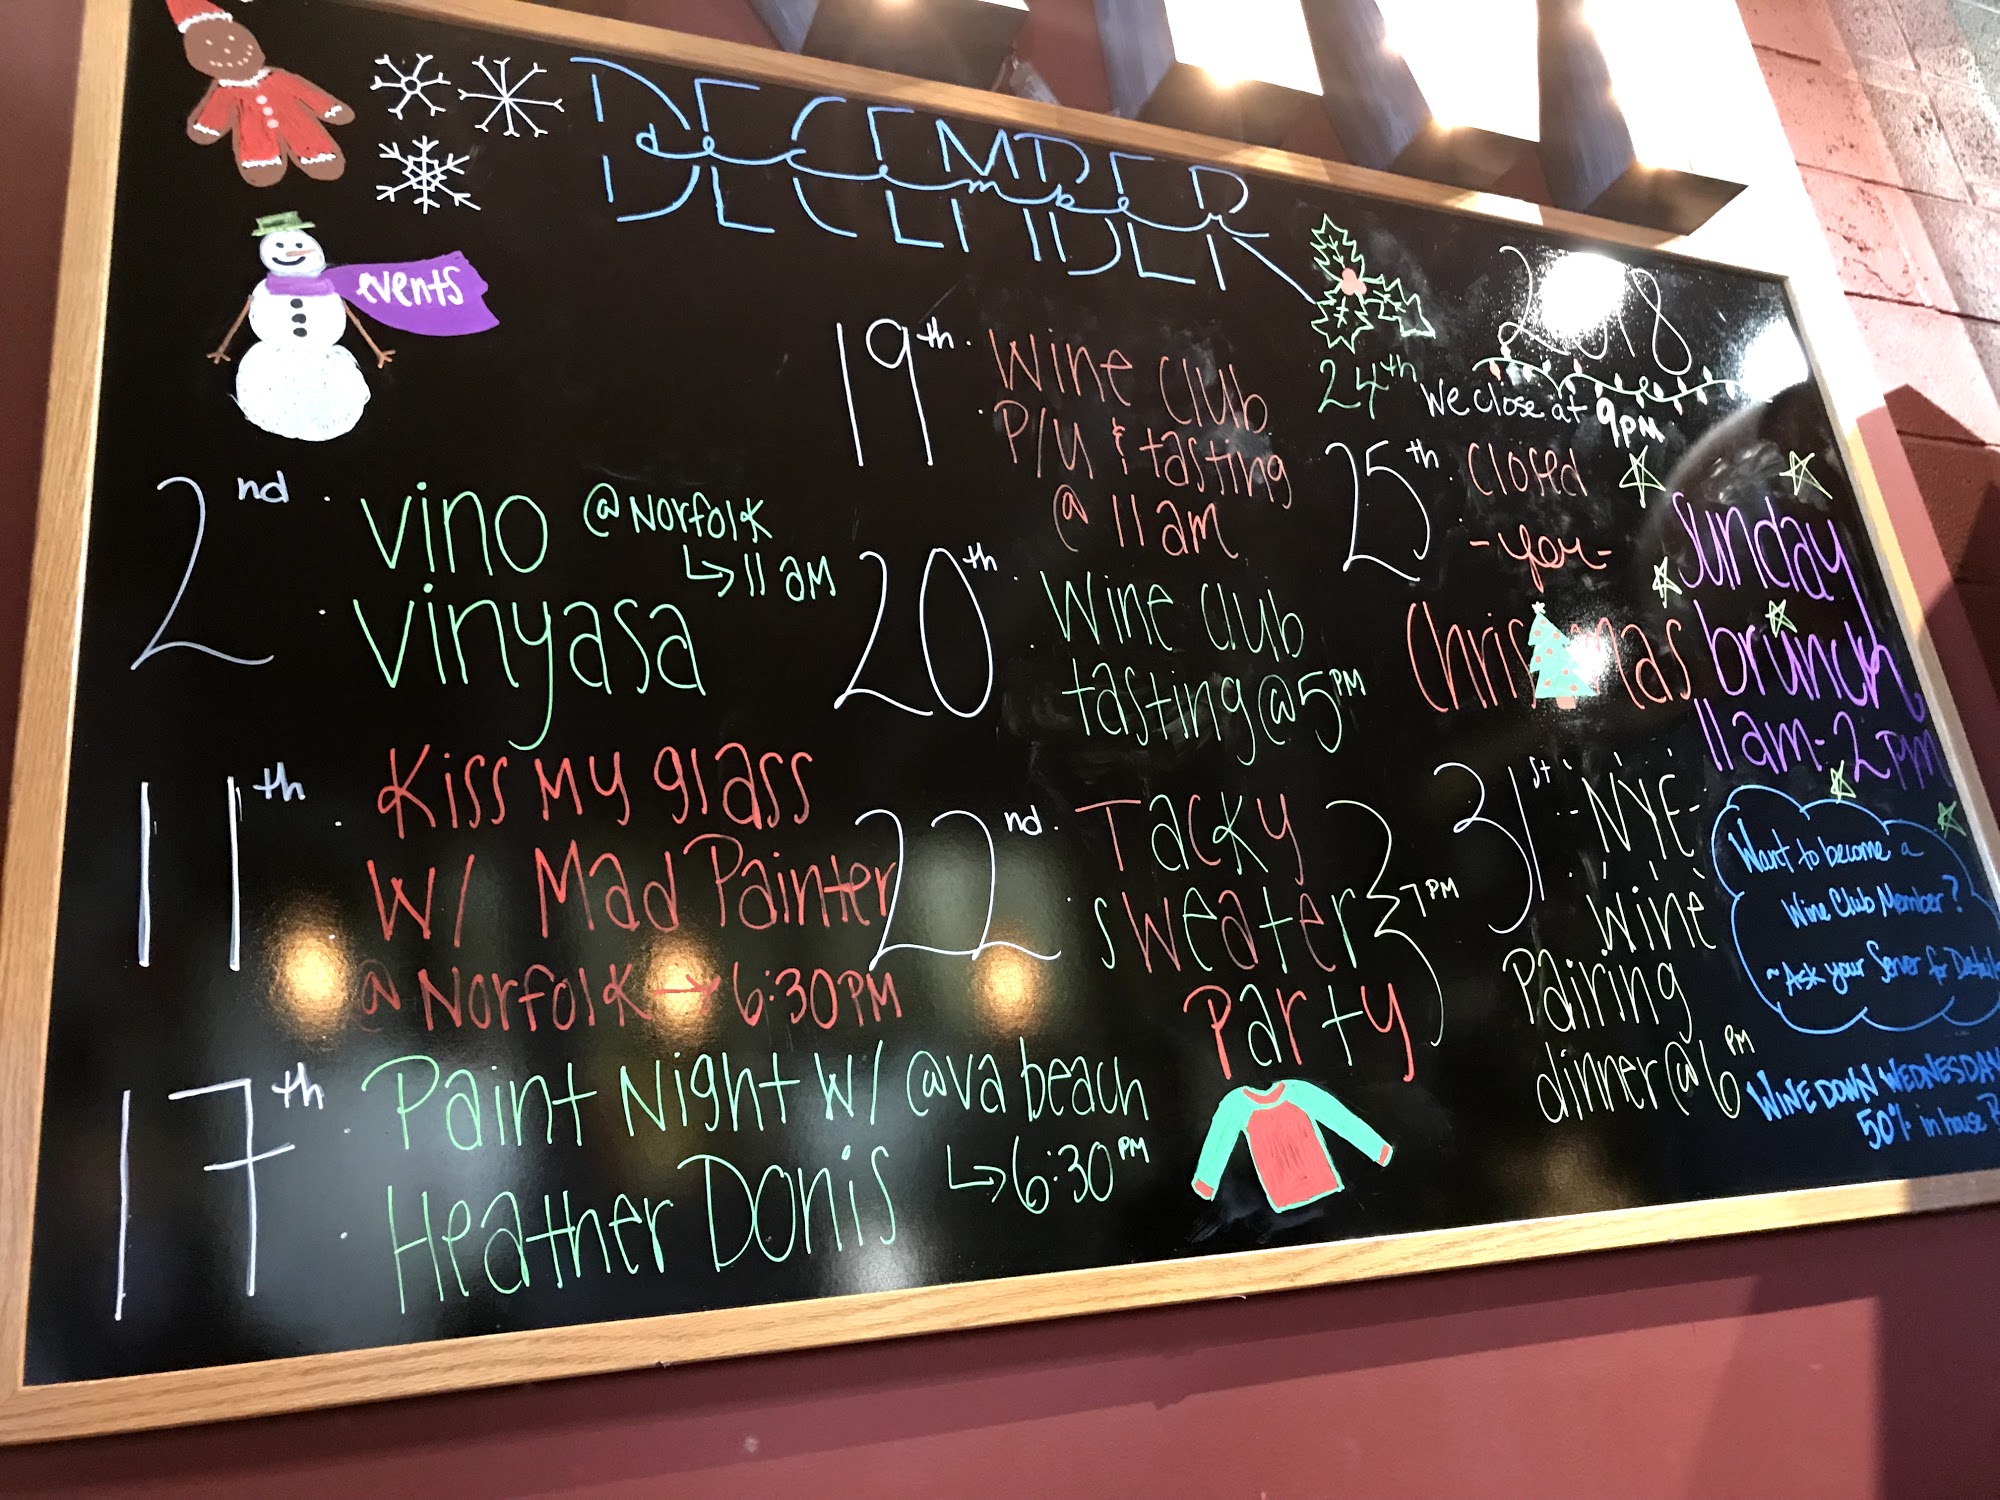 DECEMBER
december
2018
events
2nd
vino
vinyasa
@ Norfolk
11 AM
11th
Kiss My glass
W/ Mad Painter
@ Norfolk → 6:30PM
17th
Paint Night W/ @va beach
Heather Donis
6:30PM
19th
Wine Club
P/U & tasting
@ 11am
20th
Wine Club
tasting @ 5PM
22nd
Tacky
sweater
Party
7PM
24th We close at 9PM
25th Closed
- for -
Christmas
31st - NYE -
Wine
Pairing
dinner @ 6PM
Sunday
brunch
11am-2PM
Want to become a
Wine Club Member?
~ Ask your Server for
WINE DOWN WEDNESDAY
50% in house